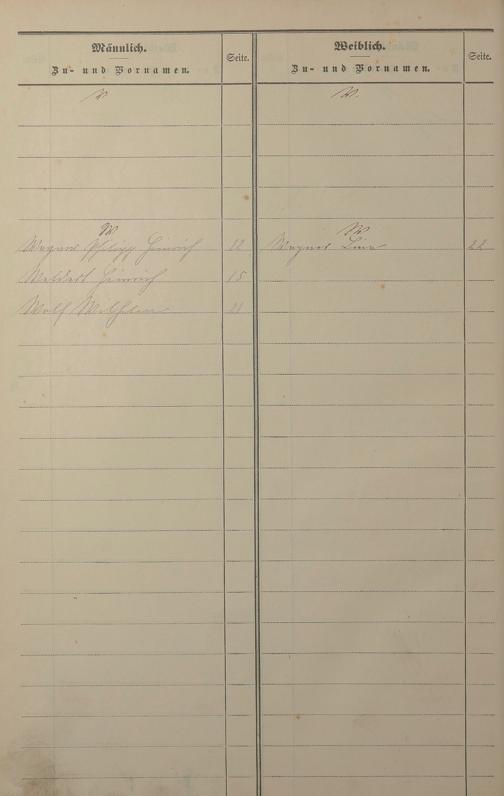 Männlich.
Zu- und Vornamen.
Seite.
V.
W
Wagner Philipp Heinrich 22
Weldert Heinrich 15
Wolf Wilhelm 21
Weiblich.
Zu- und Vornamen.
Seite.
V.
W
Wagner Lina 22